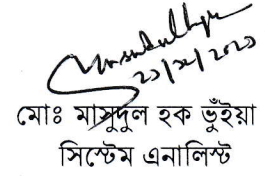 ২০/১২/২০২০
মোঃ মাসুদুল হক ভুঁইয়া
সিস্টেম এনালিস্ট